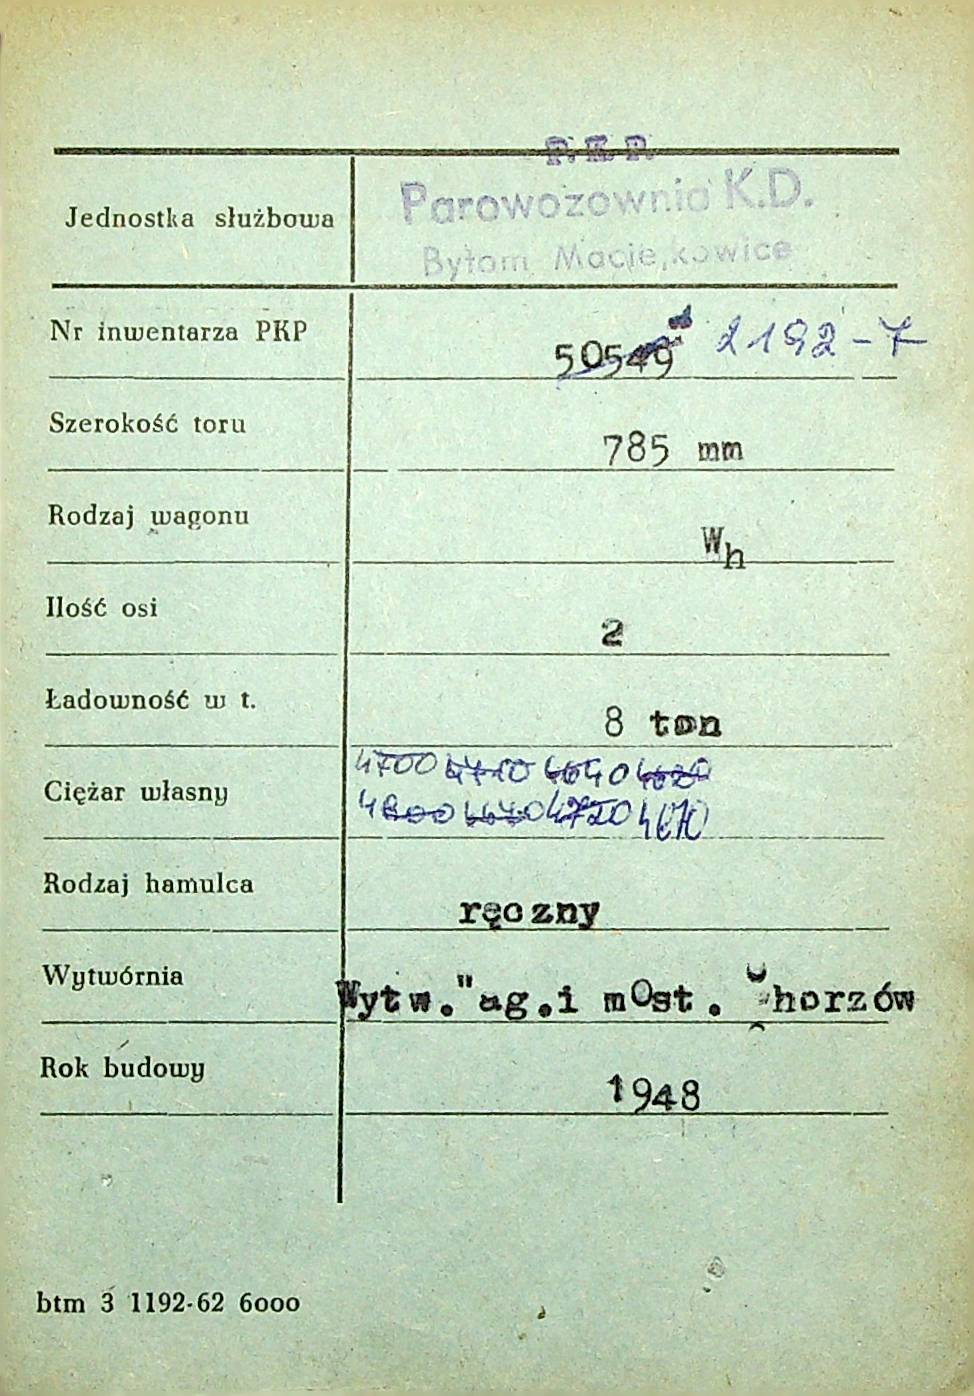 P. K. P.
Jednostka służbowa Parowozownia K.D.
Bytom Macie,kowice
Nr inwentarza PKP 50549 2192-7
Szerokość toru 785 mm
Rodzaj wagonu Wh
Ilość osi 2
Ładowność w t. 8 ton
4700 4710 4690 4620
Ciężar własny
4800 4640 4720 4670
Rodzaj hamulca ręczny
Wytwórnia Wytw."ag.i most. Chorzów
Rok budowy 1948
btm 3 1192-62 6000